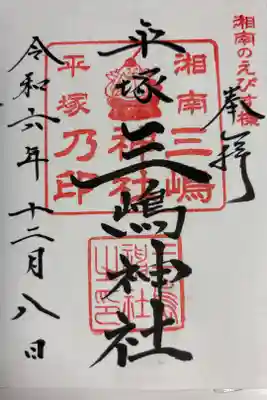 湘南のえびす様
奉拝
平塚
三嶋神社
令和六年十二月八日
湘南三嶋
神社
平塚乃印
三島神社之印